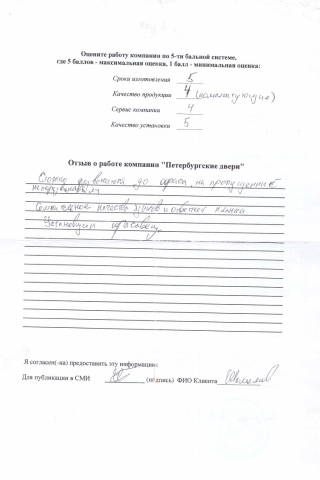 Оцените работу компании по 5-ти бальной системе,
где 5 баллов - максимальная оценка, 1 балл - минимальная оценка:
Сроки изготовления 5
Качество продукции 4 (комплектующие)
Сервис компании 4
Качество установки 5
Отзыв о работе компании "Петербургские двери"
Сложно дозвониться до офиса, на пропущенные
не перезванивали
Сомнительное качество ручек и ответной планки
Установщик красавец
Я согласен(-на) предоставить эту информацию:
Для публикации в СМИ (подпись) ФИО Клиента